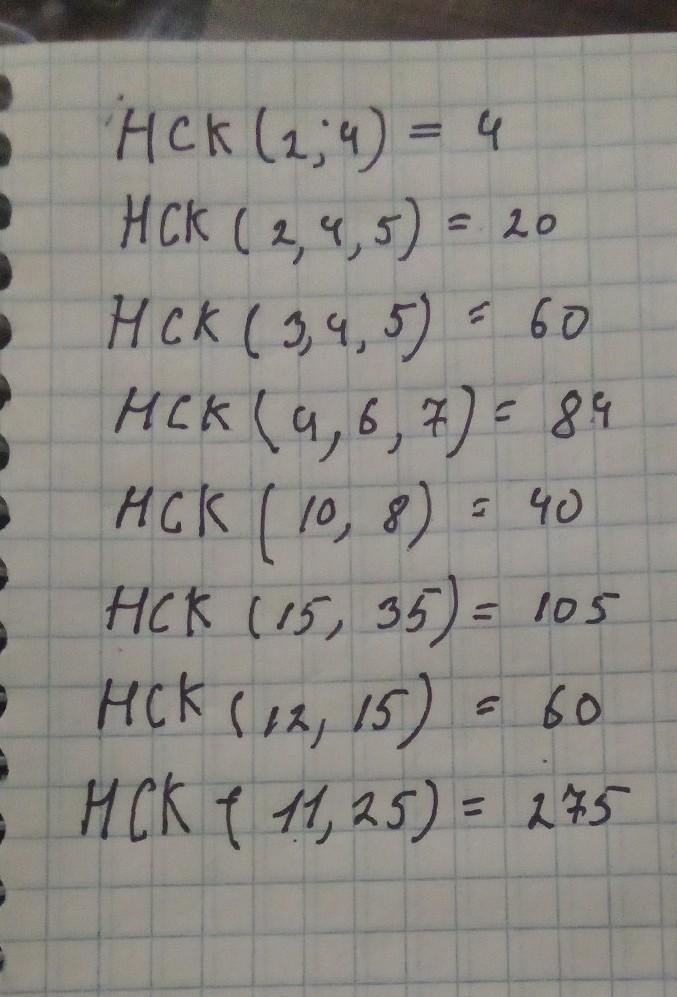 НСК (2; 4) = 4
НСК (2, 4, 5) = 20
НСК (3, 4, 5) = 60
НСК (4, 6, 7) = 84
НСК (10, 8) = 40
НСК (15, 35) = 105
НСК (12, 15) = 60
НСК (11, 25) = 275